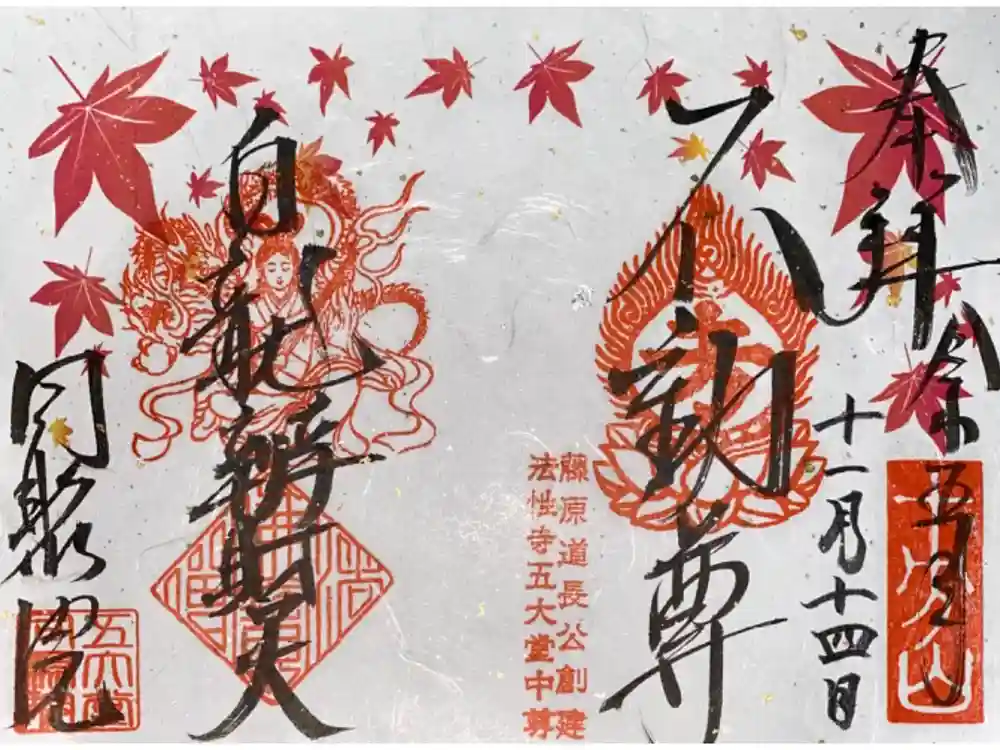 奉拝
令和五年
十一月十四日
不動尊
藤原道長公創建
法性寺五大堂中尊
白龍辨財天
同聚院